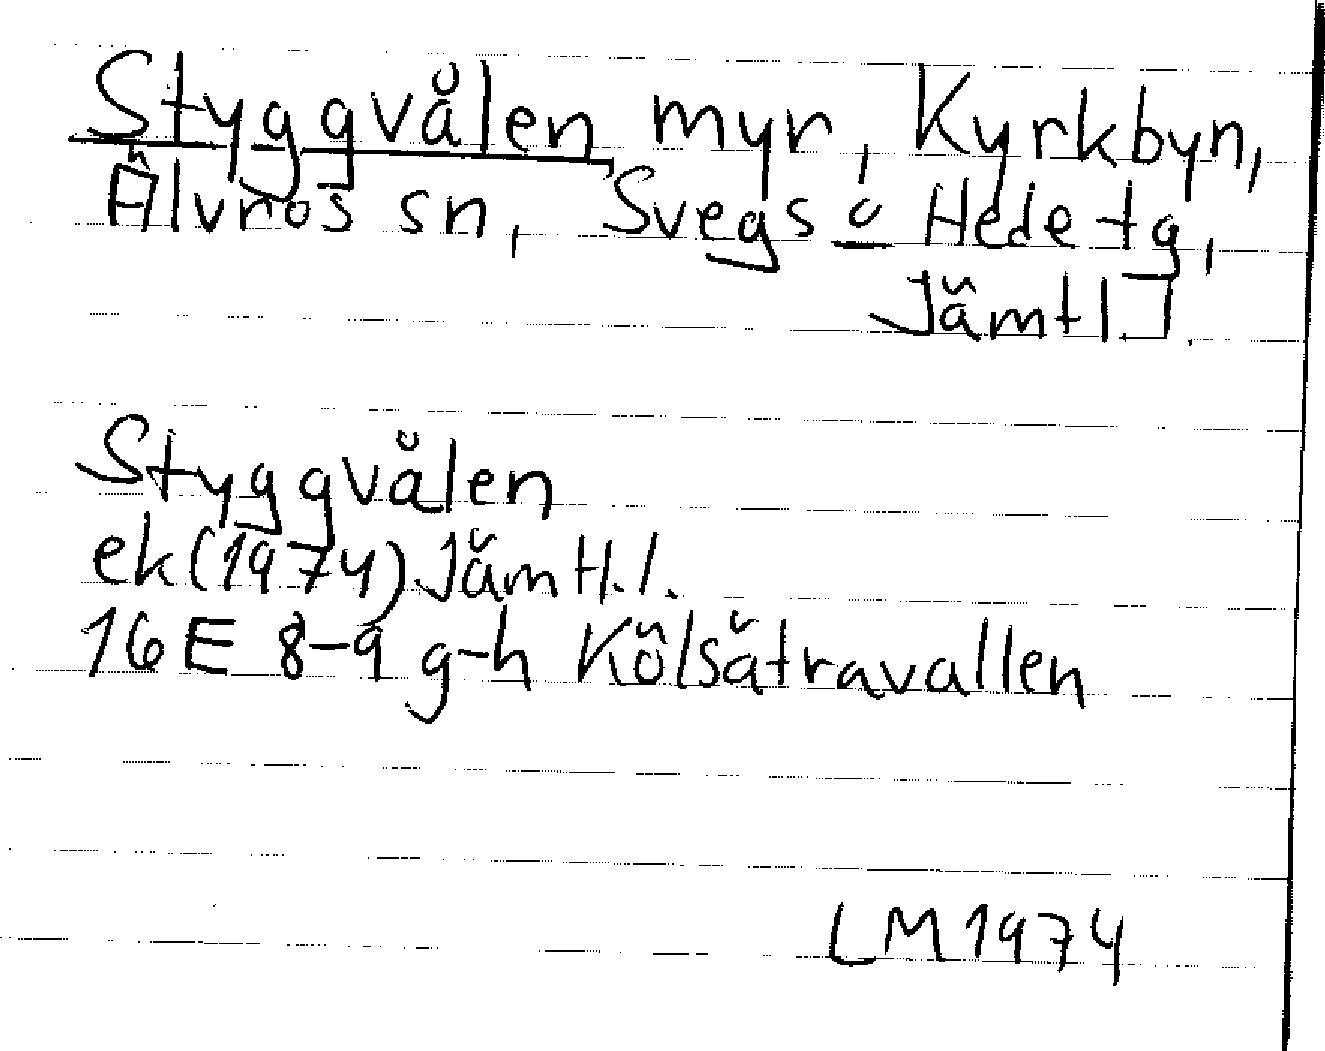 Styggvålen myr, Kyrkbyn,
Älvros sn, Svegs o Hede tg,
Jämtl.
Styggvålen
ek (1974) Jämtl.
16 E 8-9 g-h Kölsätravallen
LM 1974